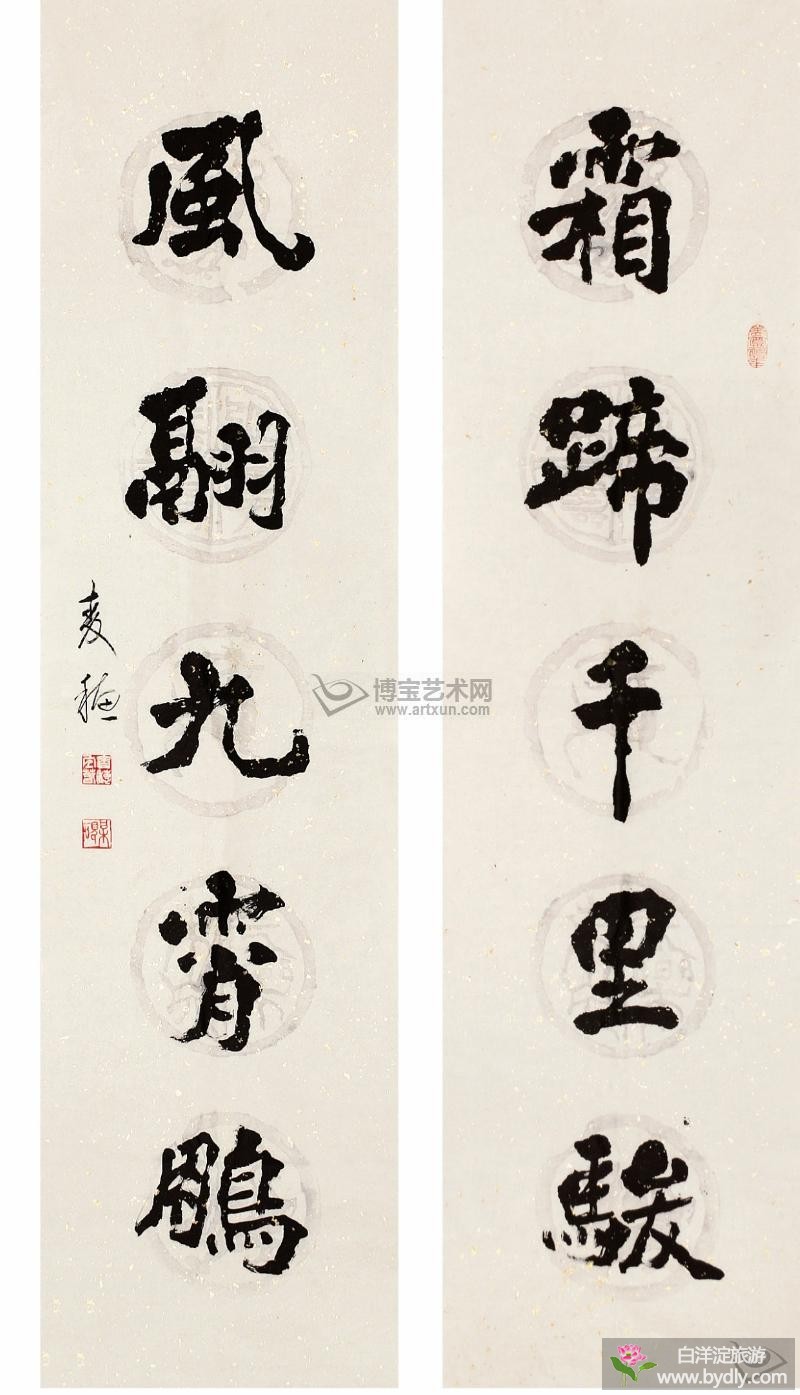 霜蹄千里駿
風翮九霄鵬
博宝艺术网
www.artxun.com
白洋淀旅游
www.bydly.com